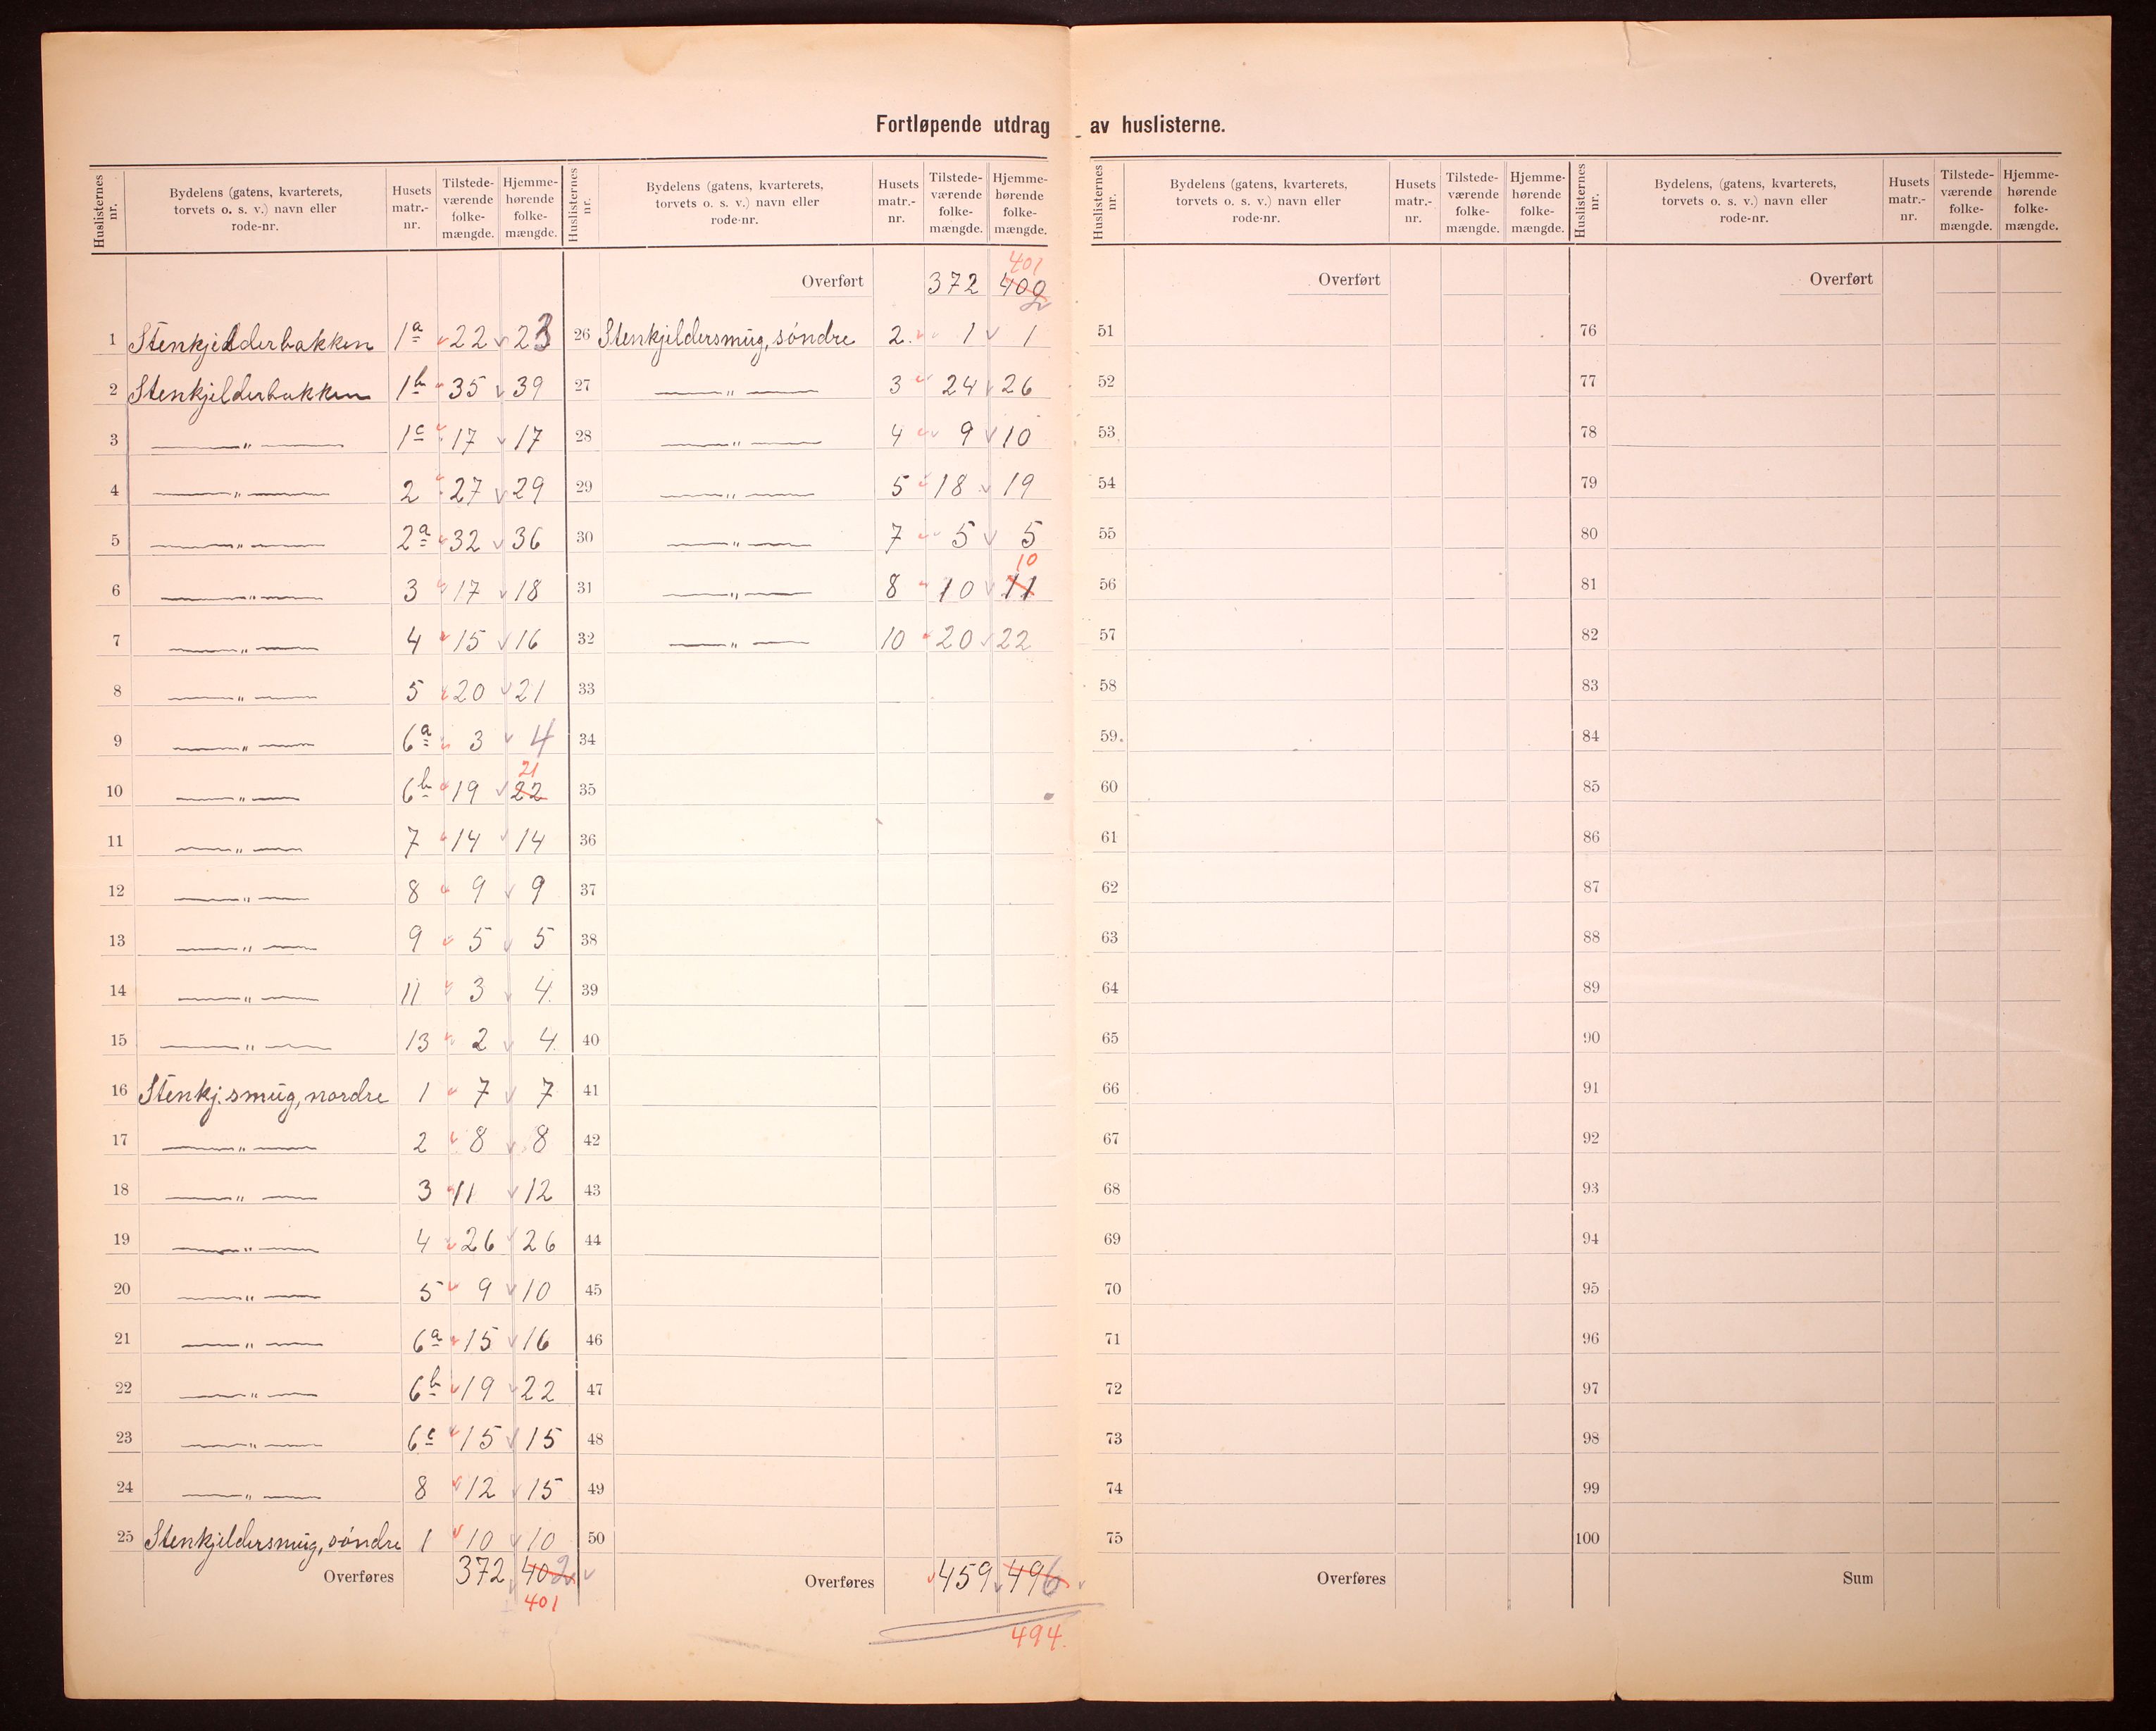 Fortløpende utdrag av huslisterne.
Huslisternes nr. | Bydelens (gatens, kvarterets, torvets o. s. v.) navn eller rode-nr. | Husets matr.-nr. | Tilstede-værende folke-mængde. | Hjemme-hørende folke-mængde.
1 Stenkjelderbakken 1a 22 23
2 Stenkjelderbakken 1b 35 39
3 —"— 1c 17 17
4 —"— 2 27 29
5 —"— 2a 32 36
6 —"— 3 17 18
7 —"— 4 15 16
8 —"— 5 20 21
9 —"— 6a 3 4
10 —"— 6b 19 22 21
11 —"— 7 14 14
12 —"— 8 9 9
13 —"— 9 5 5
14 —"— 11 3 4
15 —"— 13 2 4
16 Stenkj.smug, nordre 1 7 7
17 —"— 2 8 8
18 —"— 3 11 12
19 —"— 4 26 26
20 —"— 5 9 10
21 —"— 6a 15 16
22 —"— 6b 19 22
23 —"— 6c 15 15
24 —"— 8 12 15
25 Stenkjeldersmug, søndre 1 10 10
Overføres 372 402
401
Huslisternes nr. | Bydelens (gatens, kvarterets, torvets o. s. v.) navn eller rode-nr. | Husets matr.-nr. | Tilstede-værende folke-mængde. | Hjemme-hørende folke-mængde.
401
Overført 372 402
26 Stenkjeldersmug, søndre 2 1 1
27 —"— 3 24 26
28 —"— 4 9 10
29 —"— 5 18 19
30 —"— 7 5 5
31 —"— 8 10 11 10
32 —"— 10 20 22
33
34
35
36
37
38
39
40
41
42
43
44
45
46
47
48
49
50
Overføres 459 496
494.
Huslisternes nr. | Bydelens (gatens, kvarterets, torvets o. s. v.) navn eller rode-nr. | Husets matr.-nr. | Tilstede-værende folke-mængde. | Hjemme-hørende folke-mængde.
Overført
51
52
53
54
55
56
57
58
59
60
61
62
63
64
65
66
67
68
69
70
71
72
73
74
75
Overføres
Huslisternes nr. | Bydelens, (gatens, kvarterets, torvets o. s. v.) navn eller rode-nr. | Husets matr.-nr. | Tilstede-værende folke-mængde. | Hjemme-hørende folke-mængde.
Overført
76
77
78
79
80
81
82
83
84
85
86
87
88
89
90
91
92
93
94
95
96
97
98
99
100
Sum